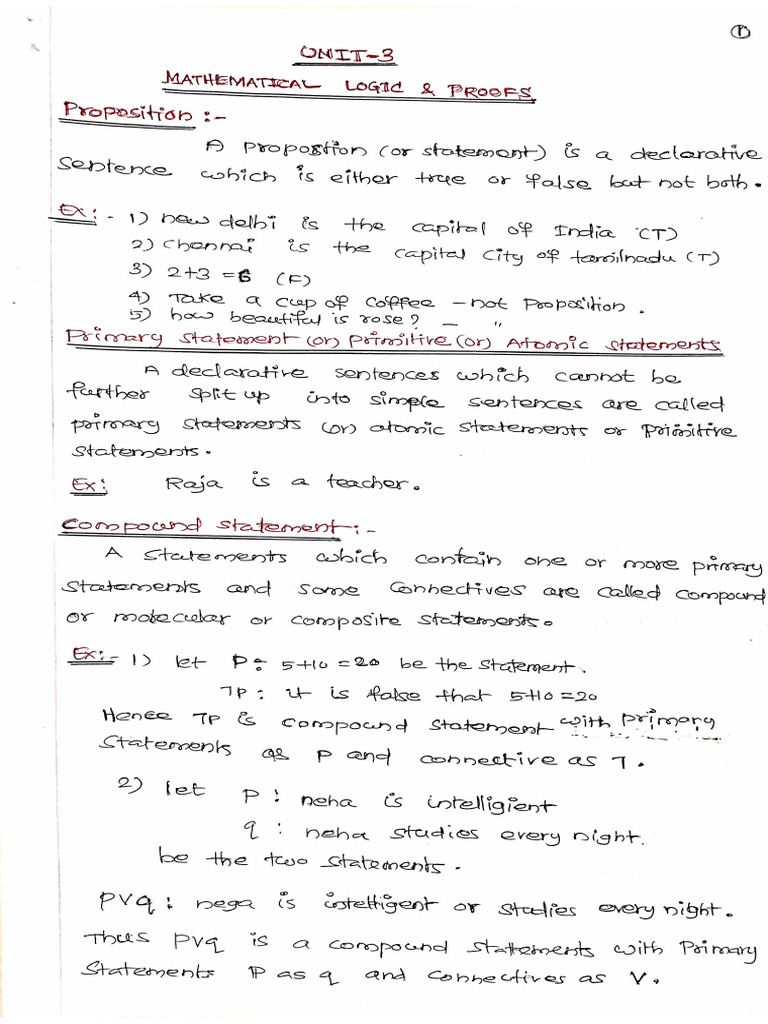 1
UNIT-3
MATHEMATICAL LOGIC & PROOFS
Proposition :-
A propostion (or statement) is a declarative
sentence which is either true or false but not both.
Ex:- 1) new delhi is the capital of India (T)
2) Chennai is the capital city of tamilnadu (T)
3) 2+3 = 6 (F)
4) Take a cup of coffee - not Proposition.
5) how beautiful is rose? - "
Primary Statement (or) Primitive (or) Atomic Statements
A declarative sentences which cannot be
further split up into simple sentences are called
primary statements (or) atomic statements or primitive
statements.
Ex: Raja is a teacher.
Compound Statement :-
A Statements which contain one or more primary
statements and some Connectives are called compound
or molecular or composite statements.
Ex:- 1) let P: 5+10=20 be the statement.
7P: it is false that 5+10=20
Hence 7P is compound statement with primary
statements as P and connective as 7.
2) let P: neha is intelligient
q: neha studies every night.
be the two statements.
PVq: nega is intelligent or studies every night.
Thus PVq is a compound statements with Primary
Statements P as q and connectives as V.